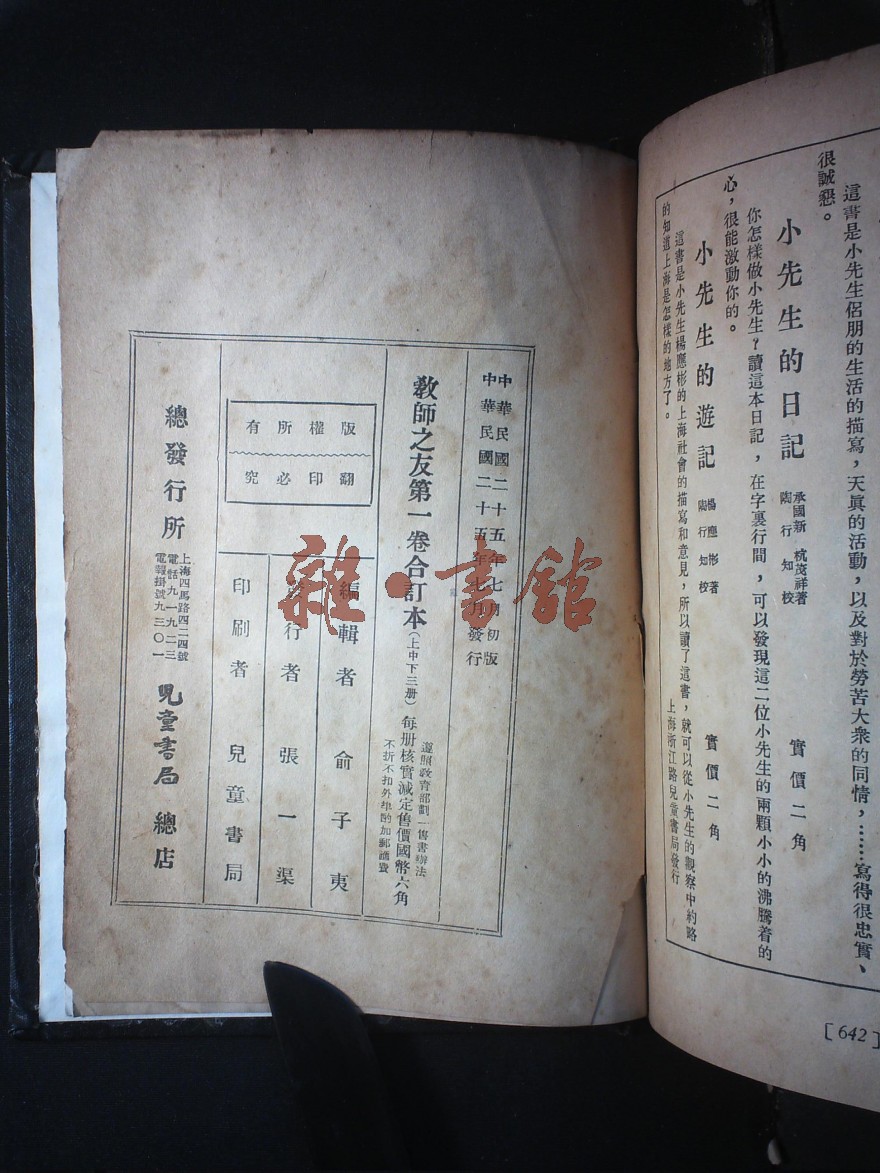 這書是小先生侶朋的生活的描寫，天眞的活動，以及對於勞苦大衆的同情，……寫得很忠實、
很誠懇。
小先生的日記 承國新 杭茂祥著 陶行知校 實價二角
你怎樣做小先生？讀這本日記，在字裏行間，可以發現這二位小先生的兩顆小小的沸騰着的
心，很能激動你的。
小先生的遊記 楊應彬著 陶行知校 實價二角
這書是小先生楊應彬的上海社會的描寫和意見，所以讀了這書，就可以從小先生的觀察中約略
的知道上海是怎樣的地方了。
上海浙江路兒童書局發行
[642]
中華民國二十五年七月初版
中華民國二十五年七月發行
敎師之友第一卷合訂本(上中下三册)每册核實減定售價國幣六角
遵照敎育部劃一售書辦法
不折不扣外埠酌加郵滙費
版權所有
翻印必究
編輯者 俞子夷
發行者 張一渠
印刷者 兒童書局
總發行所 上海四馬路四二四號 電話九一九二三 電報掛號九三〇一 兒童書局 總店
雜·書館